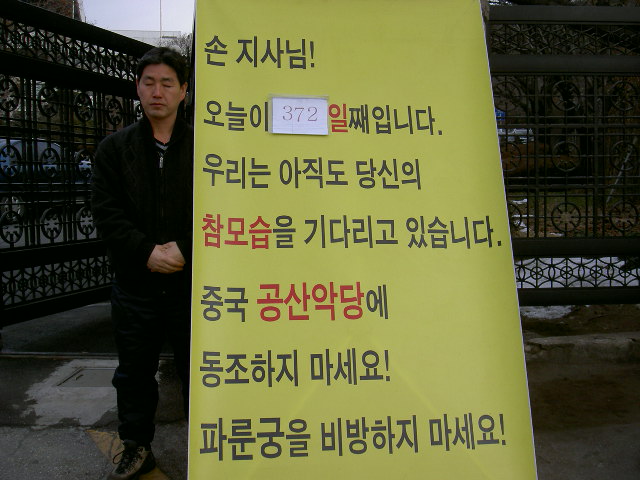 손 지사님!
오늘이 372 일째입니다.
우리는 아직도 당신의
참모습을 기다리고 있습니다.
중국 공산악당에
동조하지 마세요!
파룬궁을 비방하지 마세요!